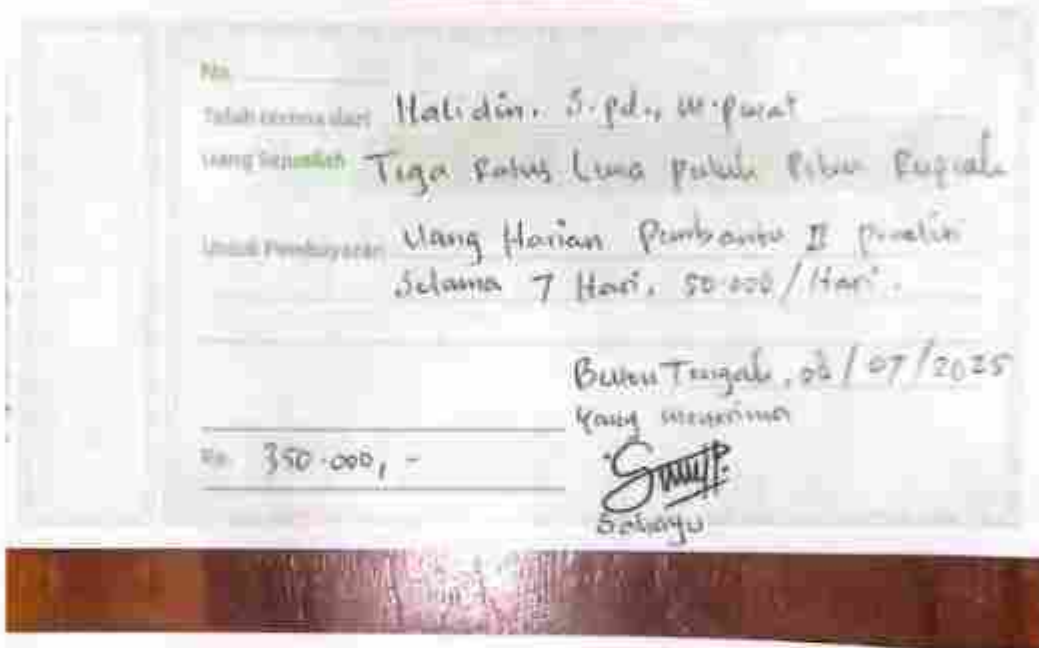 No.
Telah terima dari Halidin. S.pd., M.
Uang Sejumlah Tiga Ratus Lima Puluh Ribu Rupiah
Untuk Pembayaran Uang Harian Pembantu II Peneliti
Selama 7 Hari. 50.000/Hari.
Buton Tengah, /07/2025
Yang menerima
Rp. 350.000,-